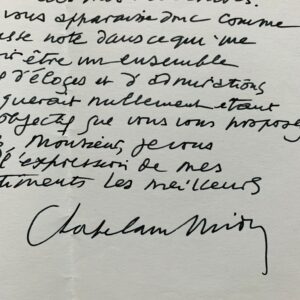 vous apparaisse donc comme
fausse note dans ce qui me
être un ensemble
d'éloges et d'admirations
nullement étant
objectif que vous vous proposez
Monsieur, je vous
l'expression de mes
timents les meilleurs
Chapelain Midy